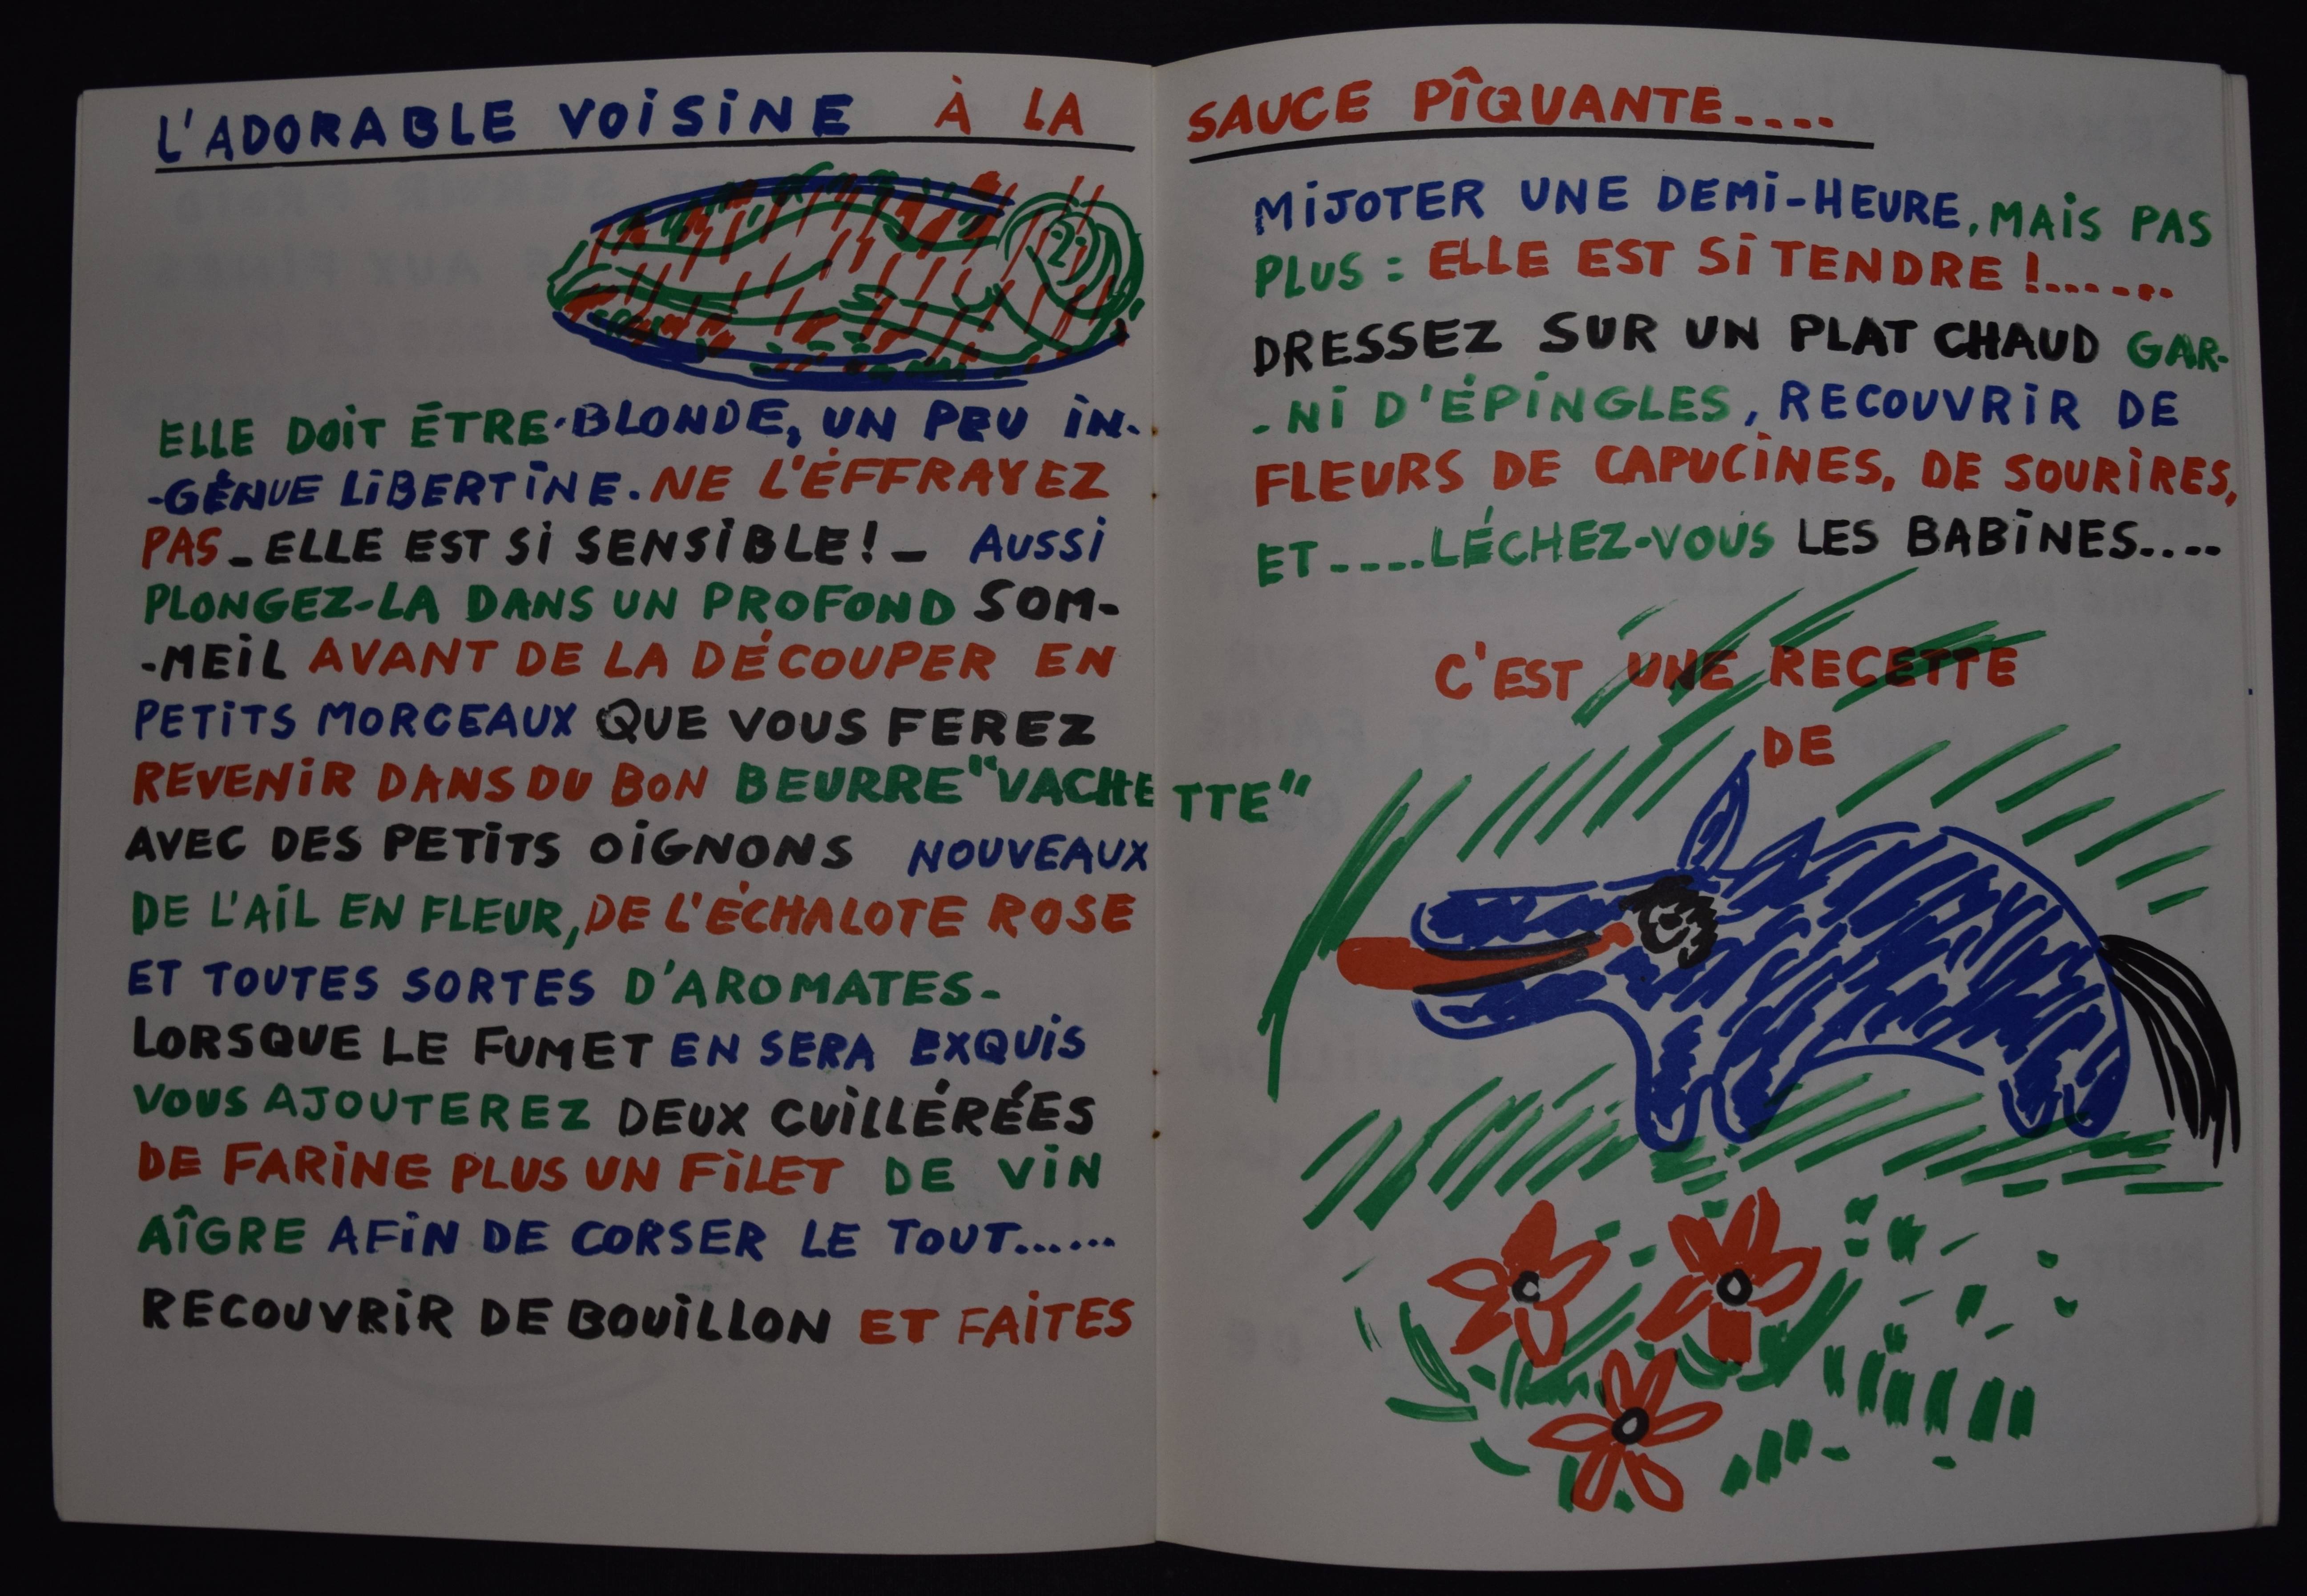 L'ADORABLE VOISINE À LA
ELLE DOIT ÊTRE·BLONDE, UN PEU IN-
-GÉNUE LIBERTINE. NE L'ÉFFRAYEZ
PAS_ELLE EST SI SENSIBLE!_ AUSSI
PLONGEZ-LA DANS UN PROFOND SOM-
-MEIL AVANT DE LA DÉCOUPER EN
PETITS MORCEAUX QUE VOUS FEREZ
REVENIR DANS DU BON BEURRE "VACHETTE"
AVEC DES PETITS OIGNONS NOUVEAUX
DE L'AIL EN FLEUR, DE L'ÉCHALOTE ROSE
ET TOUTES SORTES D'AROMATES-
LORSQUE LE FUMET EN SERA EXQUIS
VOUS AJOUTEREZ DEUX CUILLÉRÉES
DE FARINE PLUS UN FILET DE VIN
AÎGRE AFIN DE CORSER LE TOUT......
RECOUVRIR DE BOUILLON ET FAITES
SAUCE PÎQUANTE....
MIJOTER UNE DEMI-HEURE, MAIS PAS
PLUS : ELLE EST SI TENDRE !......
DRESSEZ SUR UN PLAT CHAUD GAR-
-NI D'ÉPINGLES, RECOUVRIR DE
FLEURS DE CAPUCINES, DE SOURIRES,
ET ....LÉCHEZ-VOUS LES BABINES....
C'EST UNE RECETTE
DE